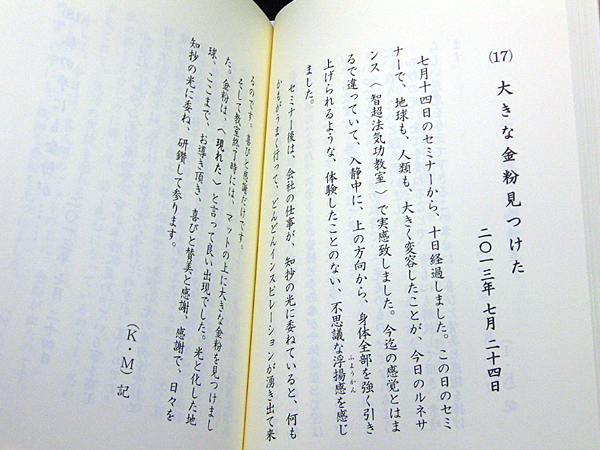 (17) 大きな金粉見つけた
二〇一三年 七月 二十四日
七月十四日のセミナーから、十日経過しました。この日のセミ
ナーで、地球も、人類も、大きく変容したことが、今日のルネサ
ンス〈智超法気功教室〉で実感致しました。今迄の感覚とはま
るで違っていて、入静中に、上の方向から、身体全部を強く引き
上げられるような、体験したことのない、不思議な浮揚感を感じ
ふようかん
ました。
セミナー後は、会社の仕事が、知抄の光に委ねていると、何も
かもがうまく行って、どんどんインスピレーションが湧き出て来
るのです。喜びと感謝だけです。
そして教室終了時には、マットの上に大きな金粉を見つけまし
た。金粉は、〈現れた〉と言って良い出現でした。光と化した地
球、ここまで、お導き頂き、喜びと賛美と感謝、感謝で、日々を
知抄の光に委ね、研鑽して参ります。
(K・M)記